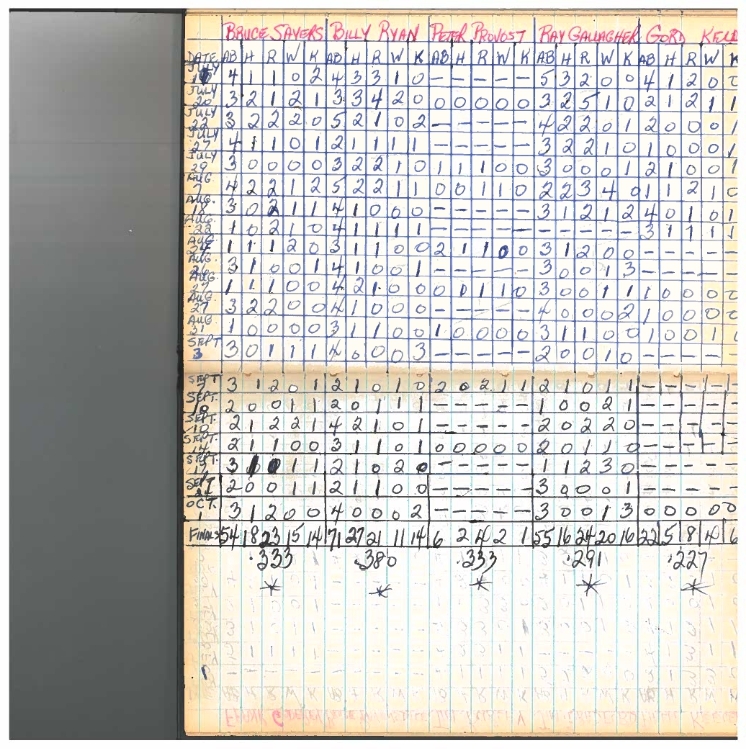 BRUCE SAYERS BILLY RYAN PETER PROVOST RAY GALLAGHER GORD KELL
DATE AB H R W K AB H R W K AB H R W K AB H R W K AB H R W K
JULY 4 1 1 0 2 4 3 3 1 0 - - - - - 5 3 2 0 0 4 1 2 0 0
JULY 20 3 2 1 2 1 3 3 4 2 0 0 0 0 0 0 3 2 5 1 0 2 1 2 1 1
JULY 22 3 2 2 2 0 5 2 1 0 2 - - - - - 4 2 2 0 1 2 0 0 0 1
JULY 27 4 1 1 0 1 2 1 1 1 1 - - - - - 3 2 2 1 0 1 0 0 0 1
JULY 29 3 0 0 0 0 3 2 2 1 0 1 1 1 0 0 3 0 0 0 1 2 1 0 0 1
AUG. 4 2 2 1 2 5 2 2 1 1 0 0 1 1 0 2 2 3 4 0 1 1 2 1 0
AUG. 18 3 0 2 1 1 4 1 0 0 0 - - - - - 3 1 2 1 2 4 0 1 0 1
AUG. 1 0 2 1 0 4 1 1 1 1 - - - - - - - - - - 3 1 1 1 1
AUG. 24 1 1 1 2 0 3 1 1 0 0 2 1 1 0 0 3 1 2 0 0 - - - - -
AUG. 3 1 0 0 1 4 1 0 0 1 - - - - - 3 0 0 1 3 - - - - -
AUG. 1 1 1 0 0 4 2 1 0 0 0 0 1 1 0 3 0 0 1 1 1 0 0 0 0
27 3 2 2 0 0 4 1 0 0 0 - - - - - 4 0 0 0 2 1 0 0 0 0
AUG. 31 1 0 0 0 0 3 1 1 0 0 1 0 0 0 0 3 1 1 0 0 1 0 0 1 0
SEPT 3 3 0 1 1 1 4 0 0 0 3 - - - - - 2 0 0 1 0 - - - - -
SEPT 3 1 2 0 1 2 1 0 1 0 2 0 2 1 1 2 1 0 1 1 - - - - -
SEPT. 2 0 0 1 1 2 0 1 1 1 - - - - - 1 0 0 2 1 - - - - -
SEPT. 10 2 1 2 2 1 4 2 1 0 1 - - - - - 2 0 2 2 0 - - - - -
SEPT. 14 2 1 1 0 0 3 1 1 0 1 0 0 0 0 0 2 0 1 1 0 - - - - -
SEPT. 17 3 1 0 1 1 2 1 0 2 0 - - - - - 1 1 2 3 0 - - - - -
SEPT 2 0 0 1 1 2 1 1 0 0 - - - - - 3 0 0 0 1 - - - - -
OCT. 1 3 1 2 0 0 4 0 0 0 2 - - - - - 3 0 0 1 3 0 0 0 0 0
FINALS 54 18 23 15 14 71 27 21 11 14 6 2 4 2 1 55 16 24 20 16 22 5 8 4 6
.333 .380 .333 .291 .227
* * * * *